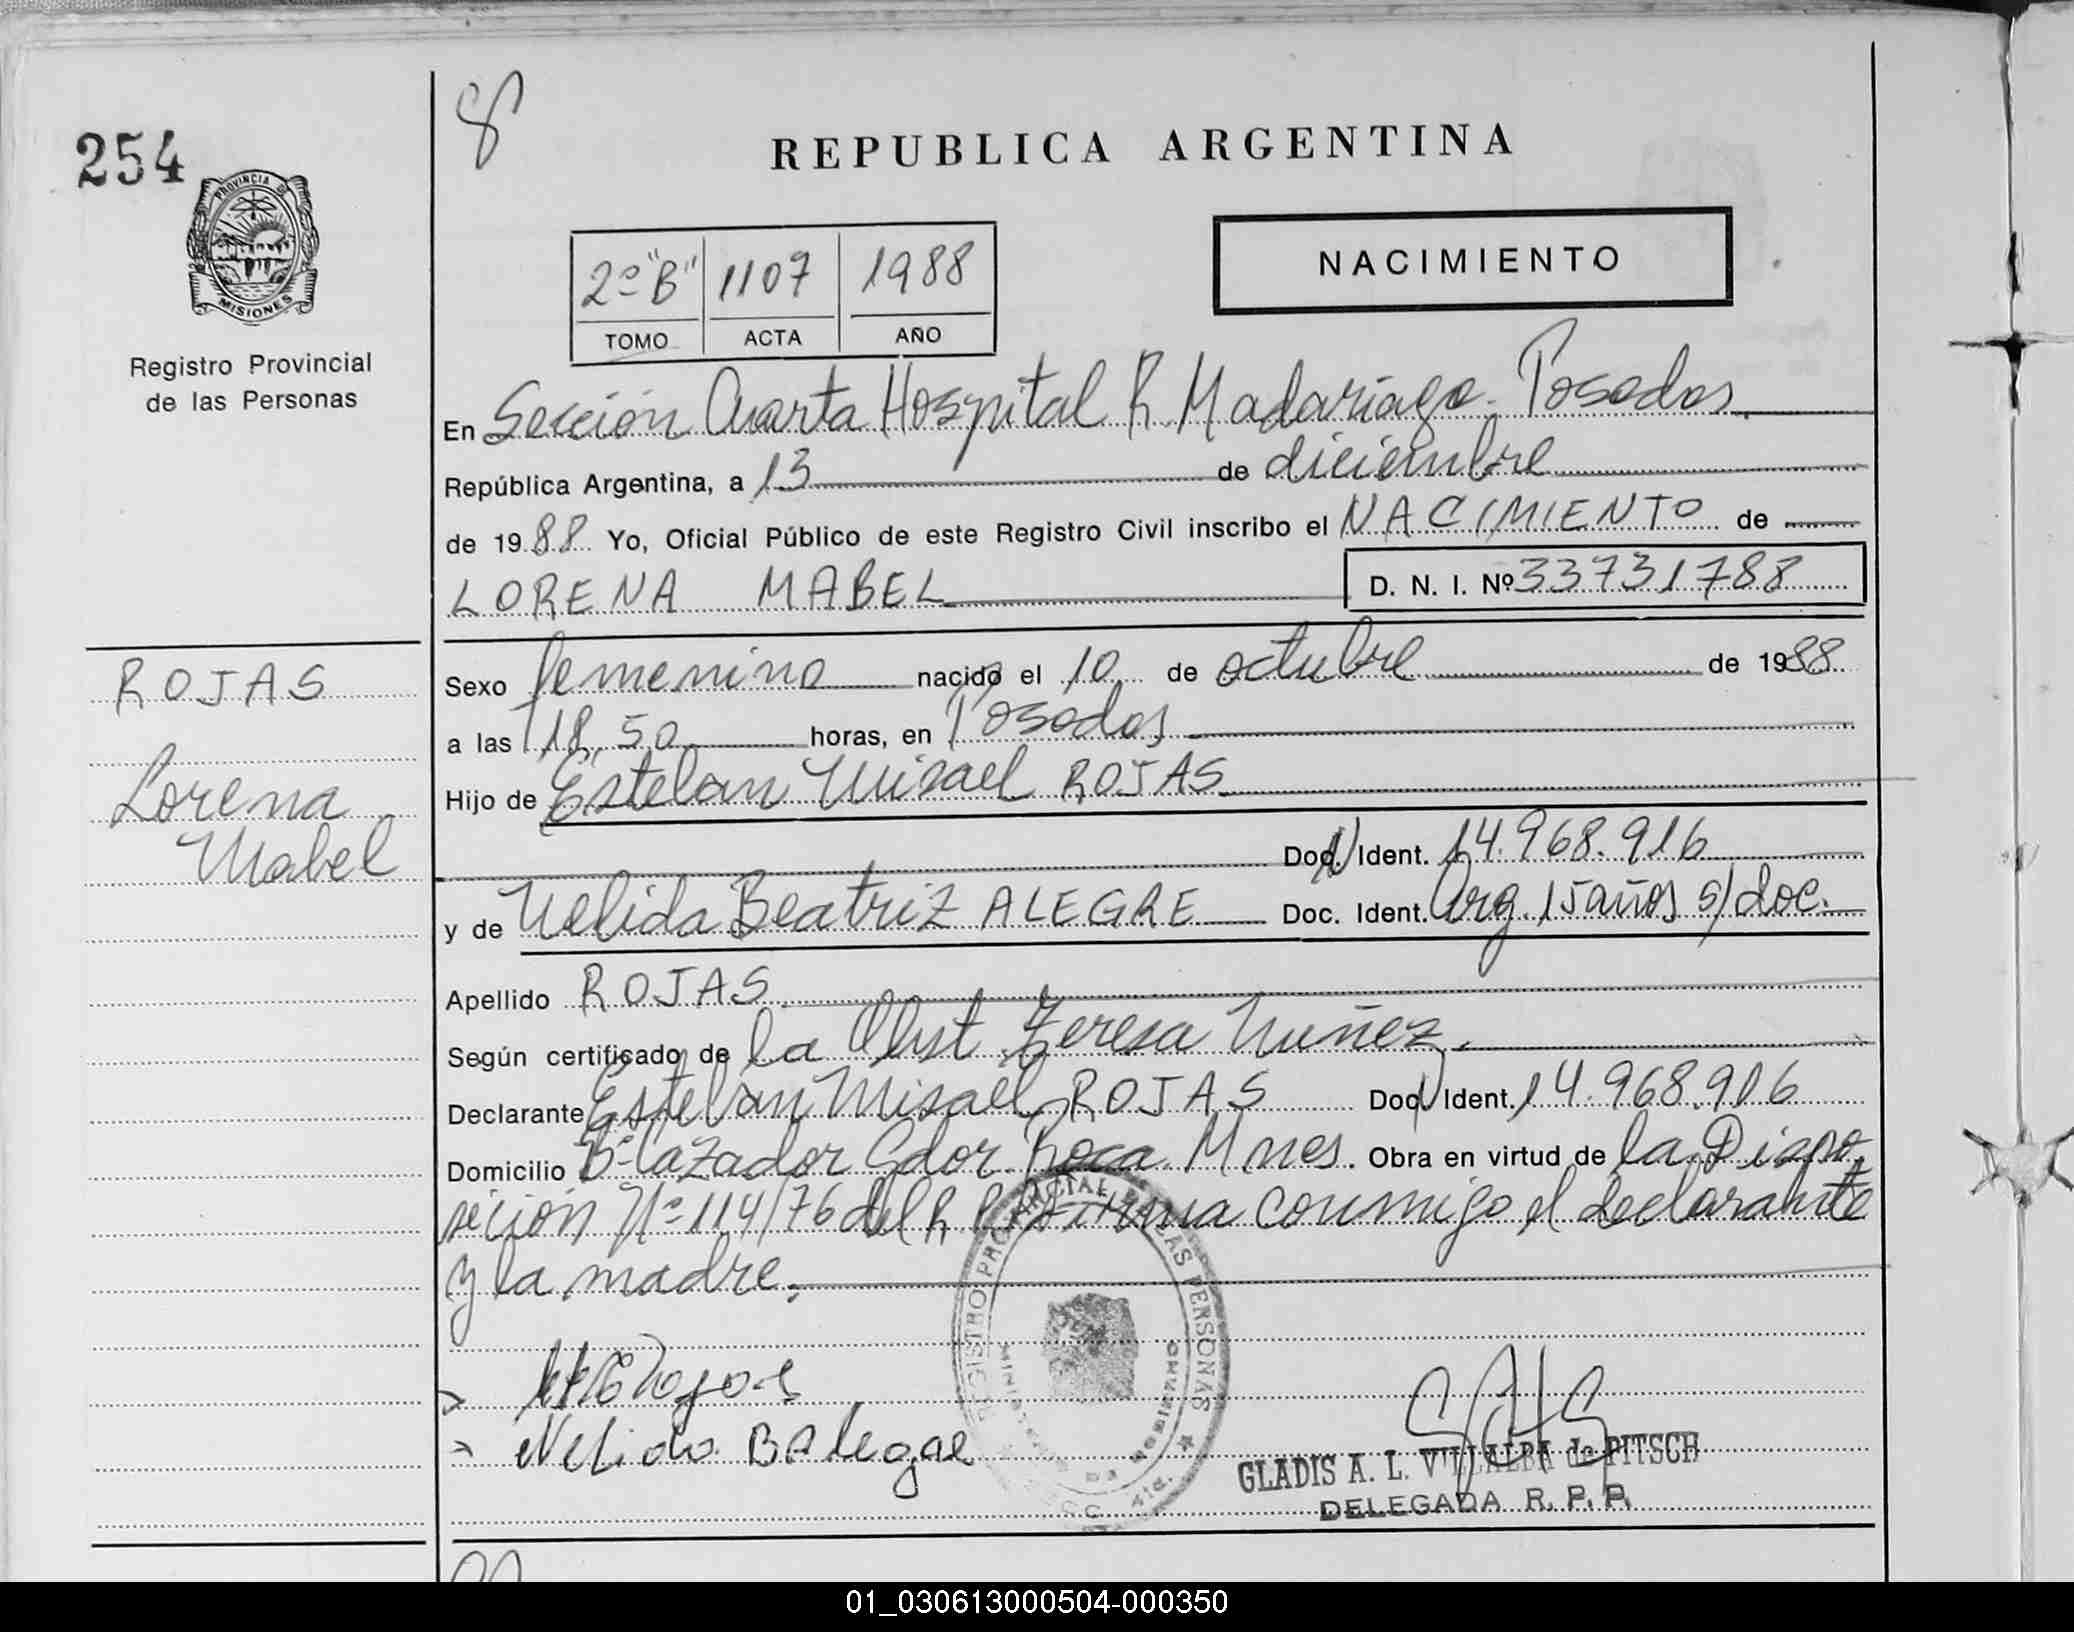 254
PROVINCIA DE
MISIONES
Registro Provincial
de las Personas
8
REPUBLICA ARGENTINA
2º "B" 1107 1988
TOMO ACTA AÑO
NACIMIENTO
En Sección Cuarta Hospital R. Madariaga. Posadas.
República Argentina, a 13 de diciembre
de 1988 Yo, Oficial Público de este Registro Civil inscribo el NACIMIENTO de
LORENA MABEL D. N. I. Nº 33731788
ROJAS
Lorena
Mabel
Sexo femenino nacida el 10 de octubre de 1988
a las 18,50 horas, en Posadas
Hijo de Esteban Misael ROJAS
Doc. Ident. 14.968.916
y de Nelida Beatriz ALEGRE Doc. Ident. Arg. 15 años s/doc.
Apellido ROJAS
Según certificado de la Obst Teresa Nuñez.
Declarante Esteban Misael ROJAS Doc. Ident. 14.968.916
Domicilio Bº Cazador Gdor Roca Mnes. Obra en virtud de la Dispo
sición Nº 114/76 del R. P. P. Firma conmigo el declarante
y la madre.
Rojas
Nelida B Alegre
REGISTRO PROVINCIAL DE LAS PERSONAS
GLADIS A. L. VILLALBA de PITSCH
DELEGADA R. P. P.
01_030613000504-000350